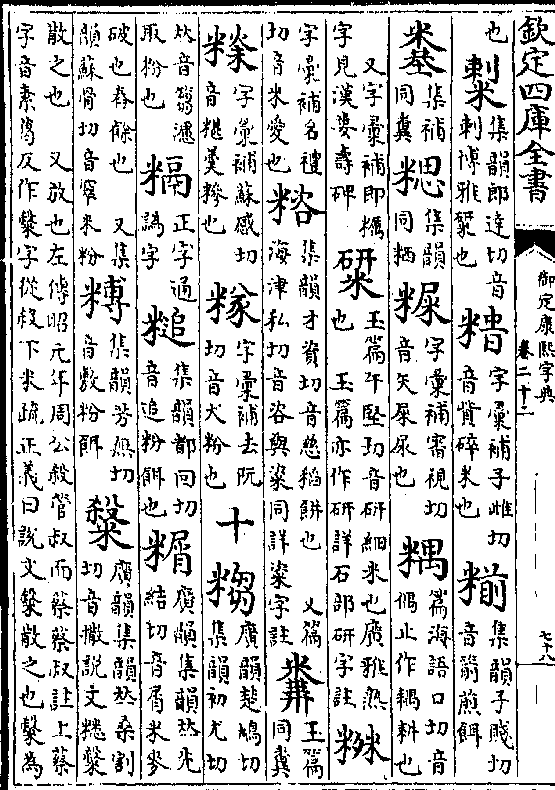 欽定四庫全書
御定康熙字典
卷二十二
七十八
也
集韻郎達切音
剌博雅也
字彙補子雌切
音貲碎米也
糋
集韻子賤切
音翦煎餌
集補
同糞
集韻
同粞
字彙補審視切
音矢屎尿也
篇海語口切音
偶止作耦耕也
又字彙補即糲
字見漢婁壽碑
玉篇午堅切音硏細米也廣雅熟
也 玉篇亦作硏詳石部硏字註
字彙補名禮
切音米愛也
集韻才資切音慈稻餅也 又篇
海津私切音咨與粢同詳粢字註
玉篇
同糞
字彙補蘇感切
音糂羹糝也
字彙補去阮
切音犬粉也
十
廣韻楚鳩切
集韻初尤切
𠀤音篘漉
取粉也
正字通
譌字
集韻都回切
音追粉餌也
糏
廣韻集韻𠀤先
結切音屑米麥
破也舂餘也 又集
韻蘇骨切音窣米粉
集韻芳無切
音敷粉餌
䊛
廣韻集韻𠀤桑割
切音撒說文䊛
散之也 又放也左傳昭元年周公殺管叔而蔡蔡叔註上蔡
字音素葛反作䊛字從殺下米疏正義曰說文䊛散之也䊛爲